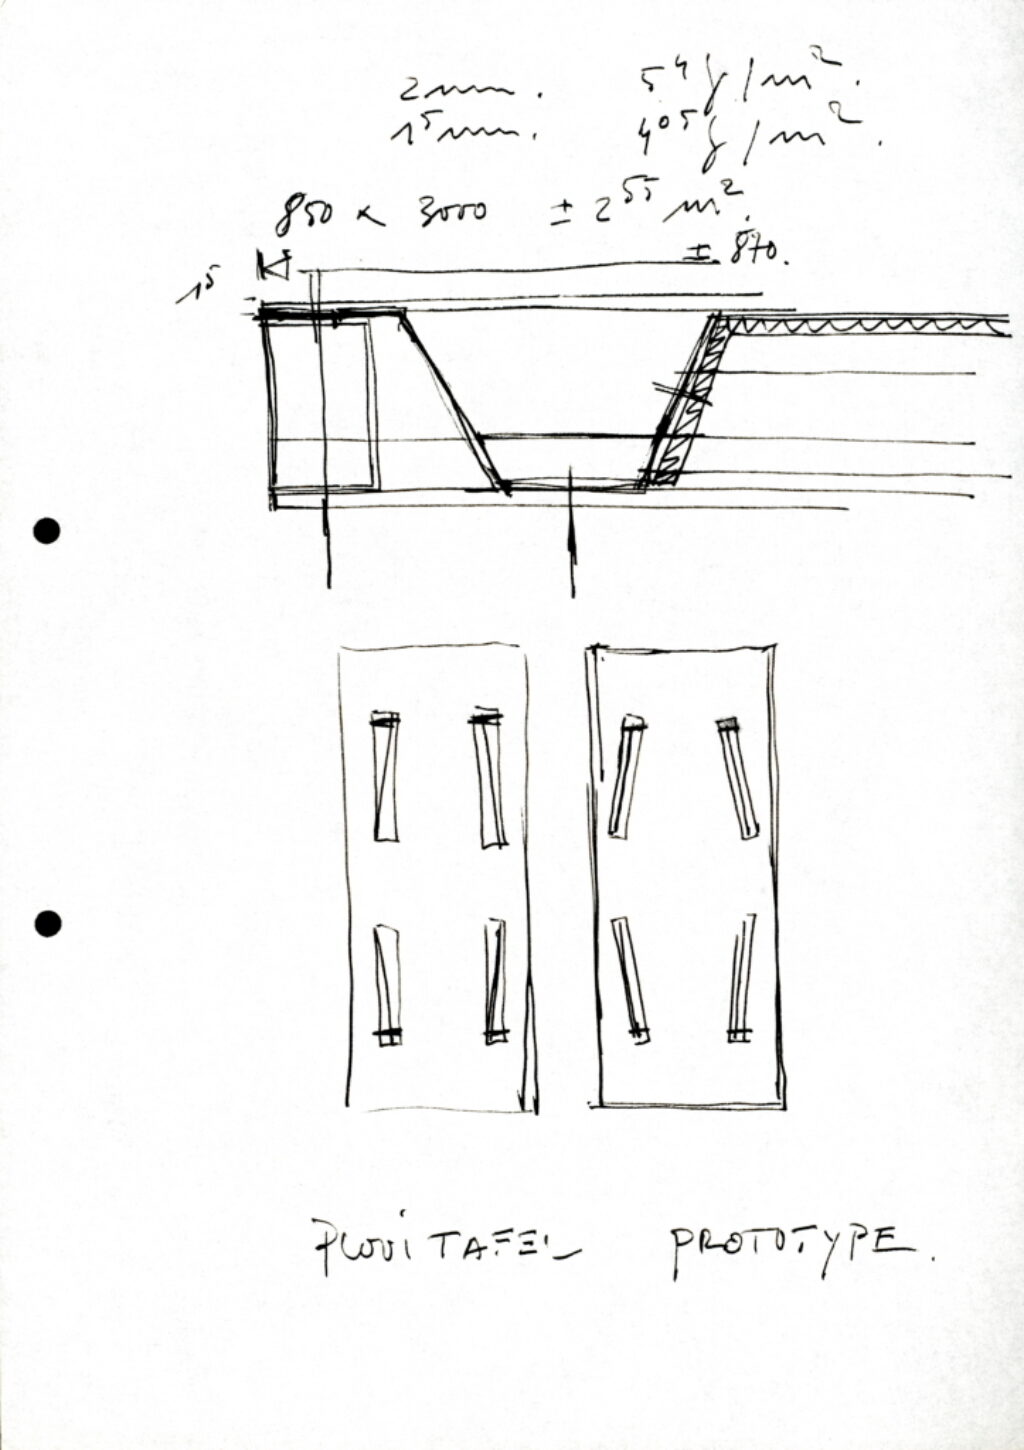 2mm. 5⁴ g/m².
1⁵mm. 4⁰⁵ g/m².
850 x 3000 ± 2⁵⁵ m².
± 870.
1⁵
PLOOiTAFEL PROTOTYPE.